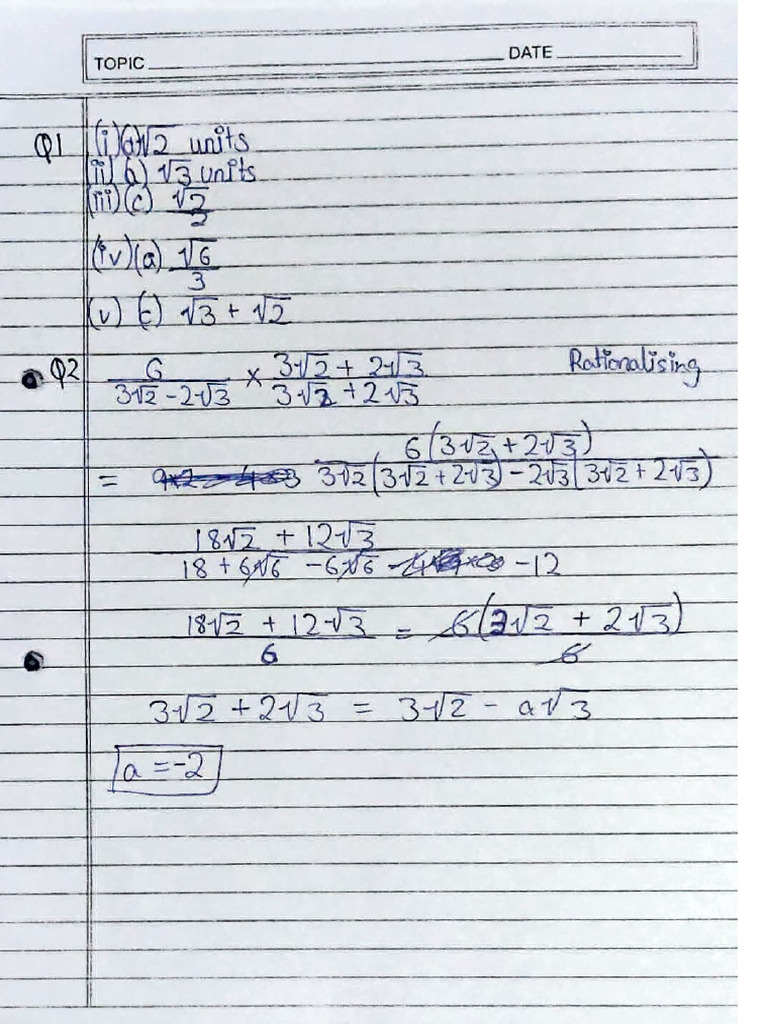 TOPIC DATE
Q1 (i) (a) √2 units
(ii) b) √3 units
(iii) (c) √2/2
(iv) (a) √6/3
(v) (c) √3 + √2
Q2 6/(3√2 - 2√3) × (3√2 + 2√3)/(3√2 + 2√3) Rationalising
= 6(3√2 + 2√3)/(3√2(3√2 + 2√3) - 2√3(3√2 + 2√3))
(18√2 + 12√3)/(18 + 6√6 - 6√6 - 12)
(18√2 + 12√3)/6 = 6(3√2 + 2√3)/6
3√2 + 2√3 = 3√2 - a√3
a = -2